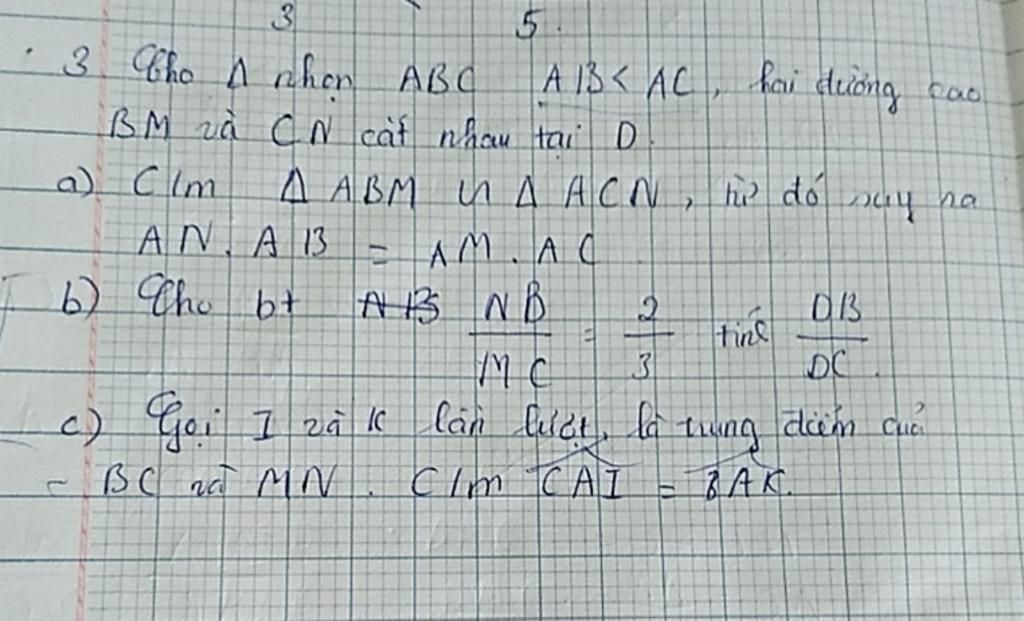 3 5.
3 Cho Δ nhọn ABC AB < AC, hai đường cao
BM và CN cắt nhau tại D.
a) C/m Δ ABM ∽ Δ ACN, từ đó suy ra
AN. AB = AM. AC
b) Cho bt NB/MC = 2/3 tính DB/DC.
c) Gọi I và K lần lượt là trung điểm của
BC và MN. C/m CAI = BAK.